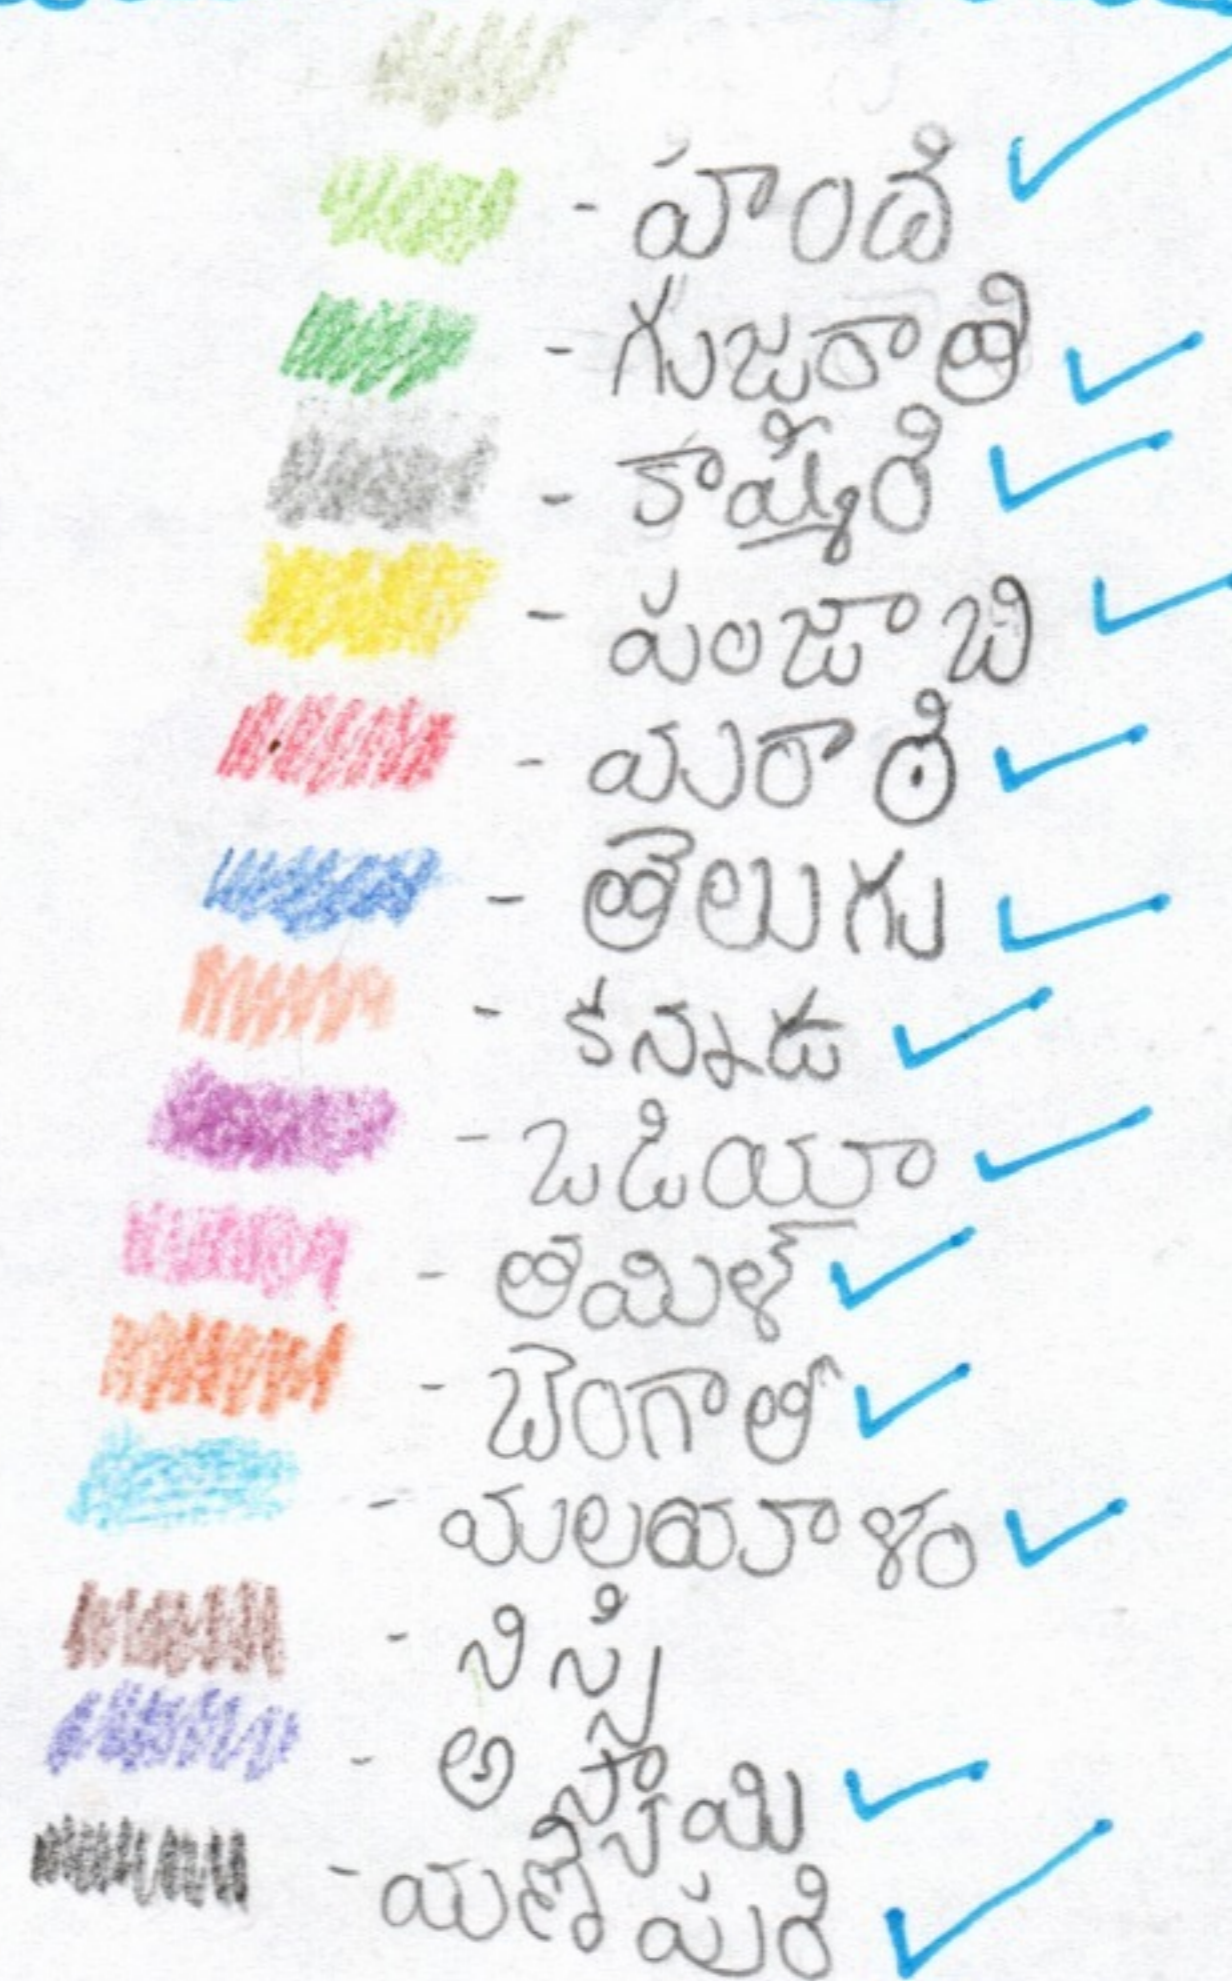 - హిందీ
- గుజరాతీ
- కాష్మీరీ
- పంజాబి
- మరాఠీ
- తెలుగు
- కన్నడ
- ఒడియా
- తమిళ్
- బెంగాలీ
- మలయాళం
- నిస్సి
- అస్సామి
- మణిపురి